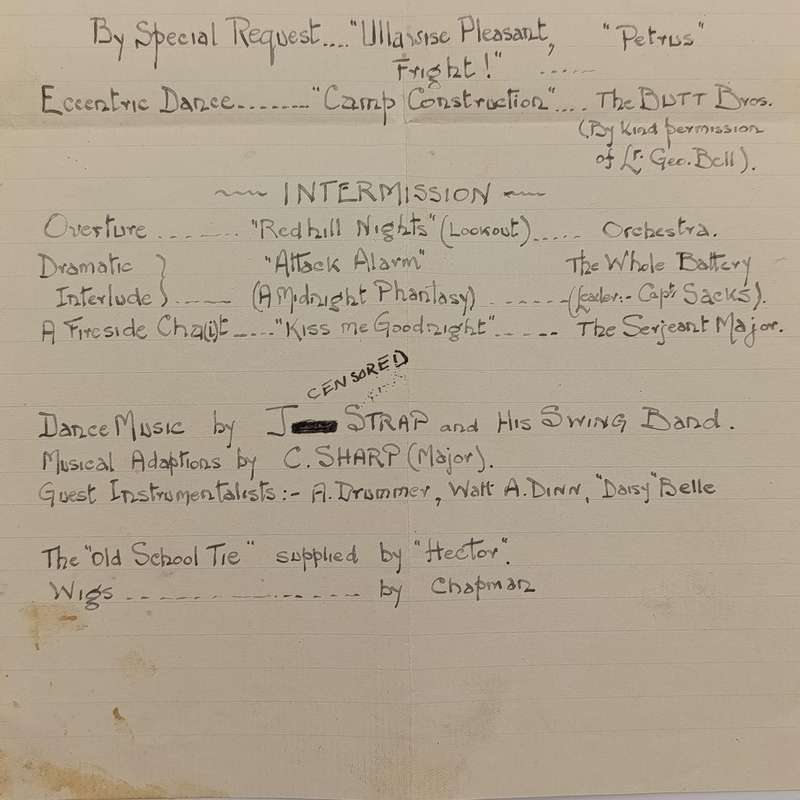 By Special Request.... "Ullassise Pleasant, "Petrus"
Fright!" ......
Eccentric Dance........ "Camp Construction".... The BUTT Bros.
(By kind permission
of Lr. Geo. Bell).
~~~ INTERMISSION ~~~
Overture ........ "Redhill Nights" (Lookout)..... Orchestra.
Dramatic } "Attack Alarm" The Whole Battery
Interlude }...... (A Midnight Phantasy) ...... (Leader:- Capt. Sacks).
A Fireside Cha(i)t ..... "Kiss me Goodnight"...... The Serjeant Major.
CENSORED
Dance Music by J STRAP and His SWING Band.
Musical Adaptions by C. SHARP (Major).
Guest Instrumentalists :- A. Drummer, Watt A. Dinn, "Daisy" Belle
The "Old School Tie" supplied by "Hector".
Wigs .................. by Chapman